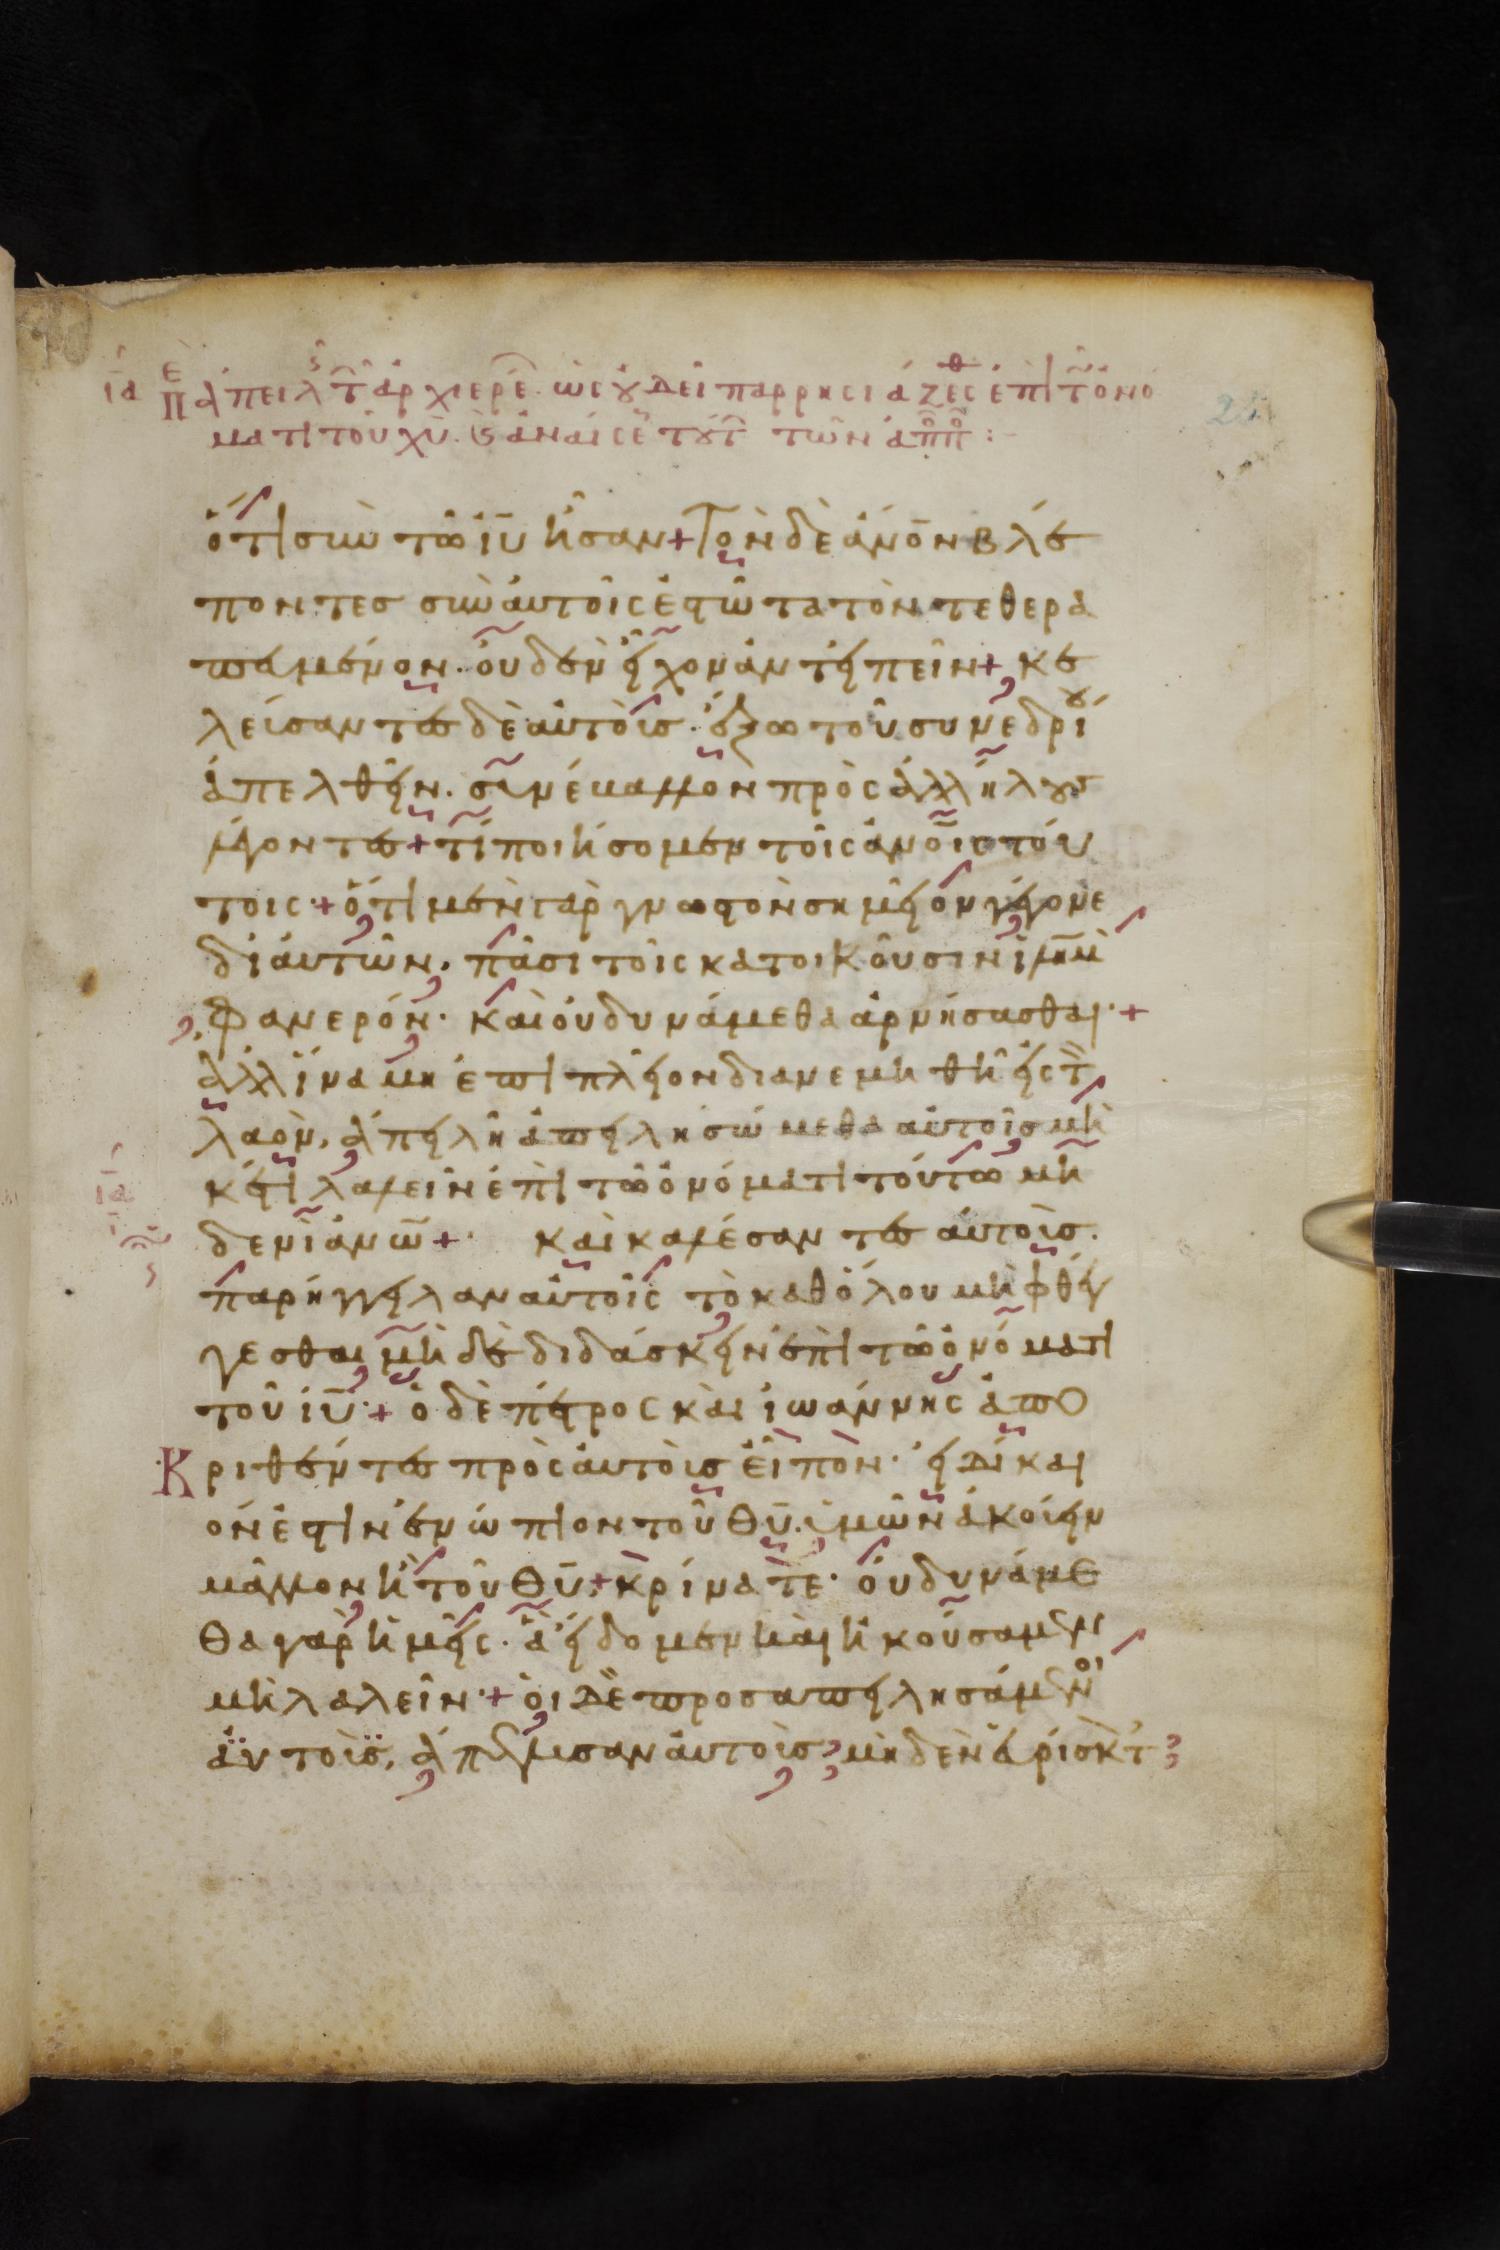 ὅτι σὺν τῶ ἰῦ ἦσαν + Τὸν δὲ ἀνὸν βλέ
ποντες σὺν αὐτοῖς ἑστῶτα τὸν τεθερα
πευμένον. οὐδὲν εἶχον ἀντειπεῖν + κε
λεύσαντες δὲ αὐτοὺς ἔξω τοῦ συνεδρίου
ἀπελθεῖν. συνέβαλλον πρὸς ἀλλήλους
λέγοντες + τί ποιήσομεν τοῖς ἀνοῖς τού
τοις + ὅτι μὲν γὰρ γνωστὸν σημεῖον γέγονε
δι αὐτῶν, πᾶσι τοῖς κατοικοῦσιν ἰλημ
φανερόν. καὶ οὐ δυνάμεθα ἀρνήσασθαι +
ἀλλ ἵνα μη ἐπι πλεῖον διανεμηθῆ εἰς τὸ
λαὸν, ἀπειλῆ ἀπειλησώμεθα αὐτοῖς μὴ
κέτι λαλεῖν ἐπὶ τῶ ὀνόματι τούτω μη
δενὶ ἀνῶ + καὶ καλέσαντες αὐτοὺς.
παρήγγειλαν αὐτοῖς τὸ καθόλου μὴ φθέγ
γεσθαι μὴ δὲ διδάσκειν ἐπὶ τῶ ὀνόματι
τοῦ ἰῦ + ὁ δὲ πέτρος καὶ ἰωάννης ἀπο
Κριθέντες πρὸς αὐτοὺς εἶπον. εἰ δίκαι
όν ἐστιν ἐνώπιον τοῦ θῦ. ὑμῶν ἀκούειν
μᾶλλον ἢ τοῦ θῦ, + κρίνατε. οὐ δυνάμε
θα γὰρ ἡμεῖς. ἃ εἴδομεν καὶ ἠκούσαμεν
μὴ λαλεῖν + οἱ δὲ προσαπειλησάμενοι
αὐτοῖς, ἀπέλυσαν αὐτοὺς, μηδὲν εὑρίσκοτ